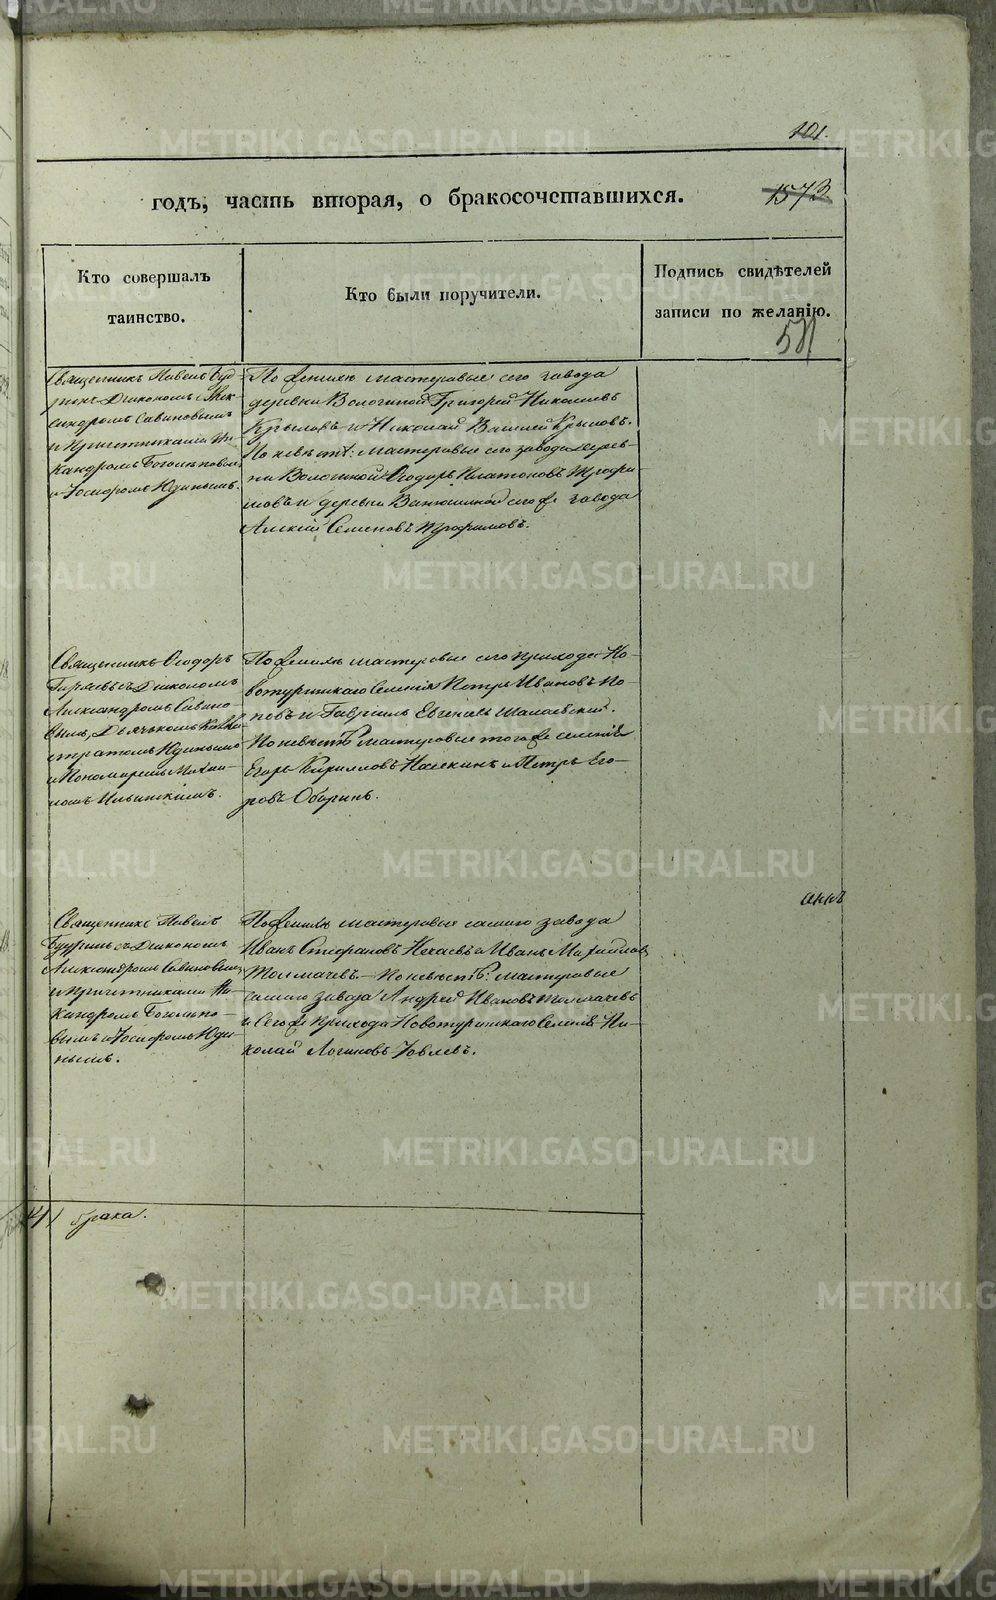 101.
годъ, часть вторая, о бракосочетавшихся.
1573
Кто совершалъ таинство.
Кто были поручители.
Подпись свидѣтелей записи по желанію.
Священникъ Павелъ
Діакономъ Алек-
сандромъ Савиновымъ
и Причетниками Ни-
кандромъ Боголѣповым
и Іосифомъ Юдинымъ.
По женихѣ мастеровые сего завода
деревни Волочиной Григорій Николаевъ
Крыловъ и Николай Крыловъ.
По невѣстѣ: мастеровые сего завода дерев-
ни Волочиной Ѳеодоръ Платоновъ Трофи-
мовъ и деревни сего же завода
Алексѣй Семеновъ Трофимовъ.
Священникъ Ѳеодоръ
съ Діакономъ
Александромъ Савино-
вымъ, Дьячкомъ
Юдинымъ
и Пономаремъ Михаи-
ломъ Ильинскимъ.
По женихѣ мастеровые сего прихода Но-
вотуринскаго селенія Петръ Ивановъ По-
повъ и Гавриилъ Евгеніевъ
По невѣстѣ мастеровые того же селенія
Егоръ Кирилловъ и Петръ Его-
ровъ Оборинъ.
Священникъ Павелъ
съ Діакономъ
Александромъ Савиновымъ
и причетниками Ни-
кандромъ Боголѣпо-
вымъ и Іосифомъ Юди-
нымъ.
По женихѣ мастеровые самаго завода
Иванъ Стефановъ Нехаевъ и Иванъ Михайловъ
Толмачевъ. – По невѣстѣ: мастеровые
самаго завода Андрей Ивановъ Толмачевъ
и сего же прихода Новотуринскаго селенія Ни-
колай Логиновъ
41 брака.
METRIKI.GASO-URAL.RU